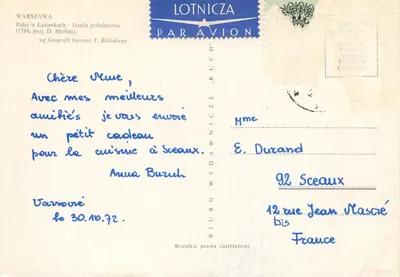 WARSZAWA
Pałac w Łazienkach - fasada południowa
(1784, proj. D. Merlini)
wg fotografii barwnej T. Bilińskiego
LOTNICZA
PAR AVION
Chère Mme,
Avec mes meilleurs
amitiés je vous envoie
un petit cadeau
pour la cuisine à Sceaux.
Anna
Varsovie
le 30.10.72
BIURO WYDAWNICZE „RUCH”
Mme
E. Durand
92 Sceaux
12 rue Jean Mascré
bis
France
Wszelkie prawa zastrzeżone